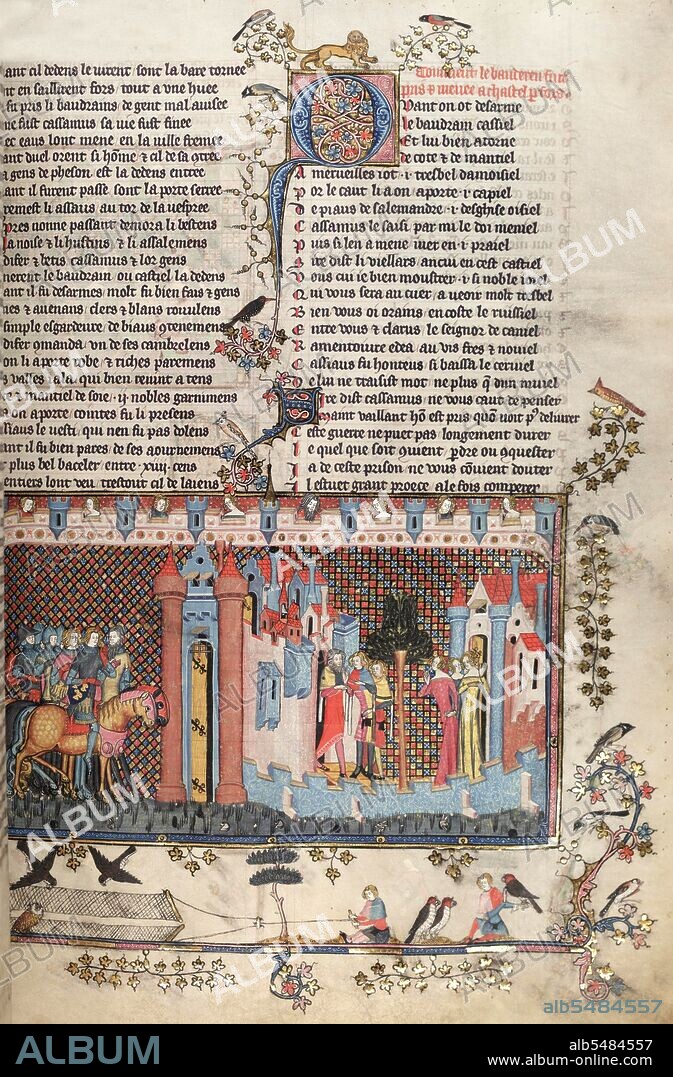 ant cil dedens le uirent sont la bare tornee
nt en saillirent fors tout a vne huee
fu pris li baudrains de gent mal auisee
ne fust cassamus sa uie fust finee
ont mene en la uille
orent si home & cil de sa
a gens de pheson est la dedens entree
ant il furent passe sont la porte serree
remest li assaus au tor de la uespree
pres nonne passant demora li bestens
a noise & li hustins & li assalemens
difer & betis cassamus &
nerent le baudrain ou castiel la dedens
ant il fu desarmes molt fu bien fais & gens
nes & auenans clers & blans
simple esgardeure de biaus
difer comanda vn de ses cambrelens
on li aporte robe & riches paremens
s valles ala qui bien reuint a tens
& mantiel de soie ij nobles garnimens
a on aporte cointes fu li presens
uesti qui nen fu pas dolens
ant il fu bien pares de ses aournemens
plus bel baceler entre xiiij cens
entiers lont veu trestout cil de laiens
Comment le bauderen fu
pris & menee a chastel
Qvant on ot desarme
le baudrain cassiel
Et lui bien atorne
de cote & de mantiel
A merueilles i ot i tresbel damoisiel
por le caut li a on aporte i capiel
De piaus de salemandre i oisiel
Cassamus le saisi par mi le doi meniel
puis si len a mene iuer en i praiel
Sire dist li viellars ancui en cest castiel
Vous cui ie bien moustrer i si noble
Qui vous sera au cuer a veoir molt tresbel
Bien vous i orains en coste le ruissiel
Entre vous & clarus le seignor de
Ramentoiure edea au vis fres & nouiel
Cassiaus fu honteus si baissa le ceruiel
De lui ne traisist mot ne plus q dun muiel
Sire dist cassamus ne vous caut de penser
Maint vaillant ho est pris quon uoit deliurer
Ceste guerre ne puet pas longement durer
Ie quel que soit couient perdre ou conquester
Ia de ceste prison ne vous couient douter
Il estuet grant proece a le fois comperer
ALBUM
alb5484557
ALBUM
alb5484557
www.album-online.com